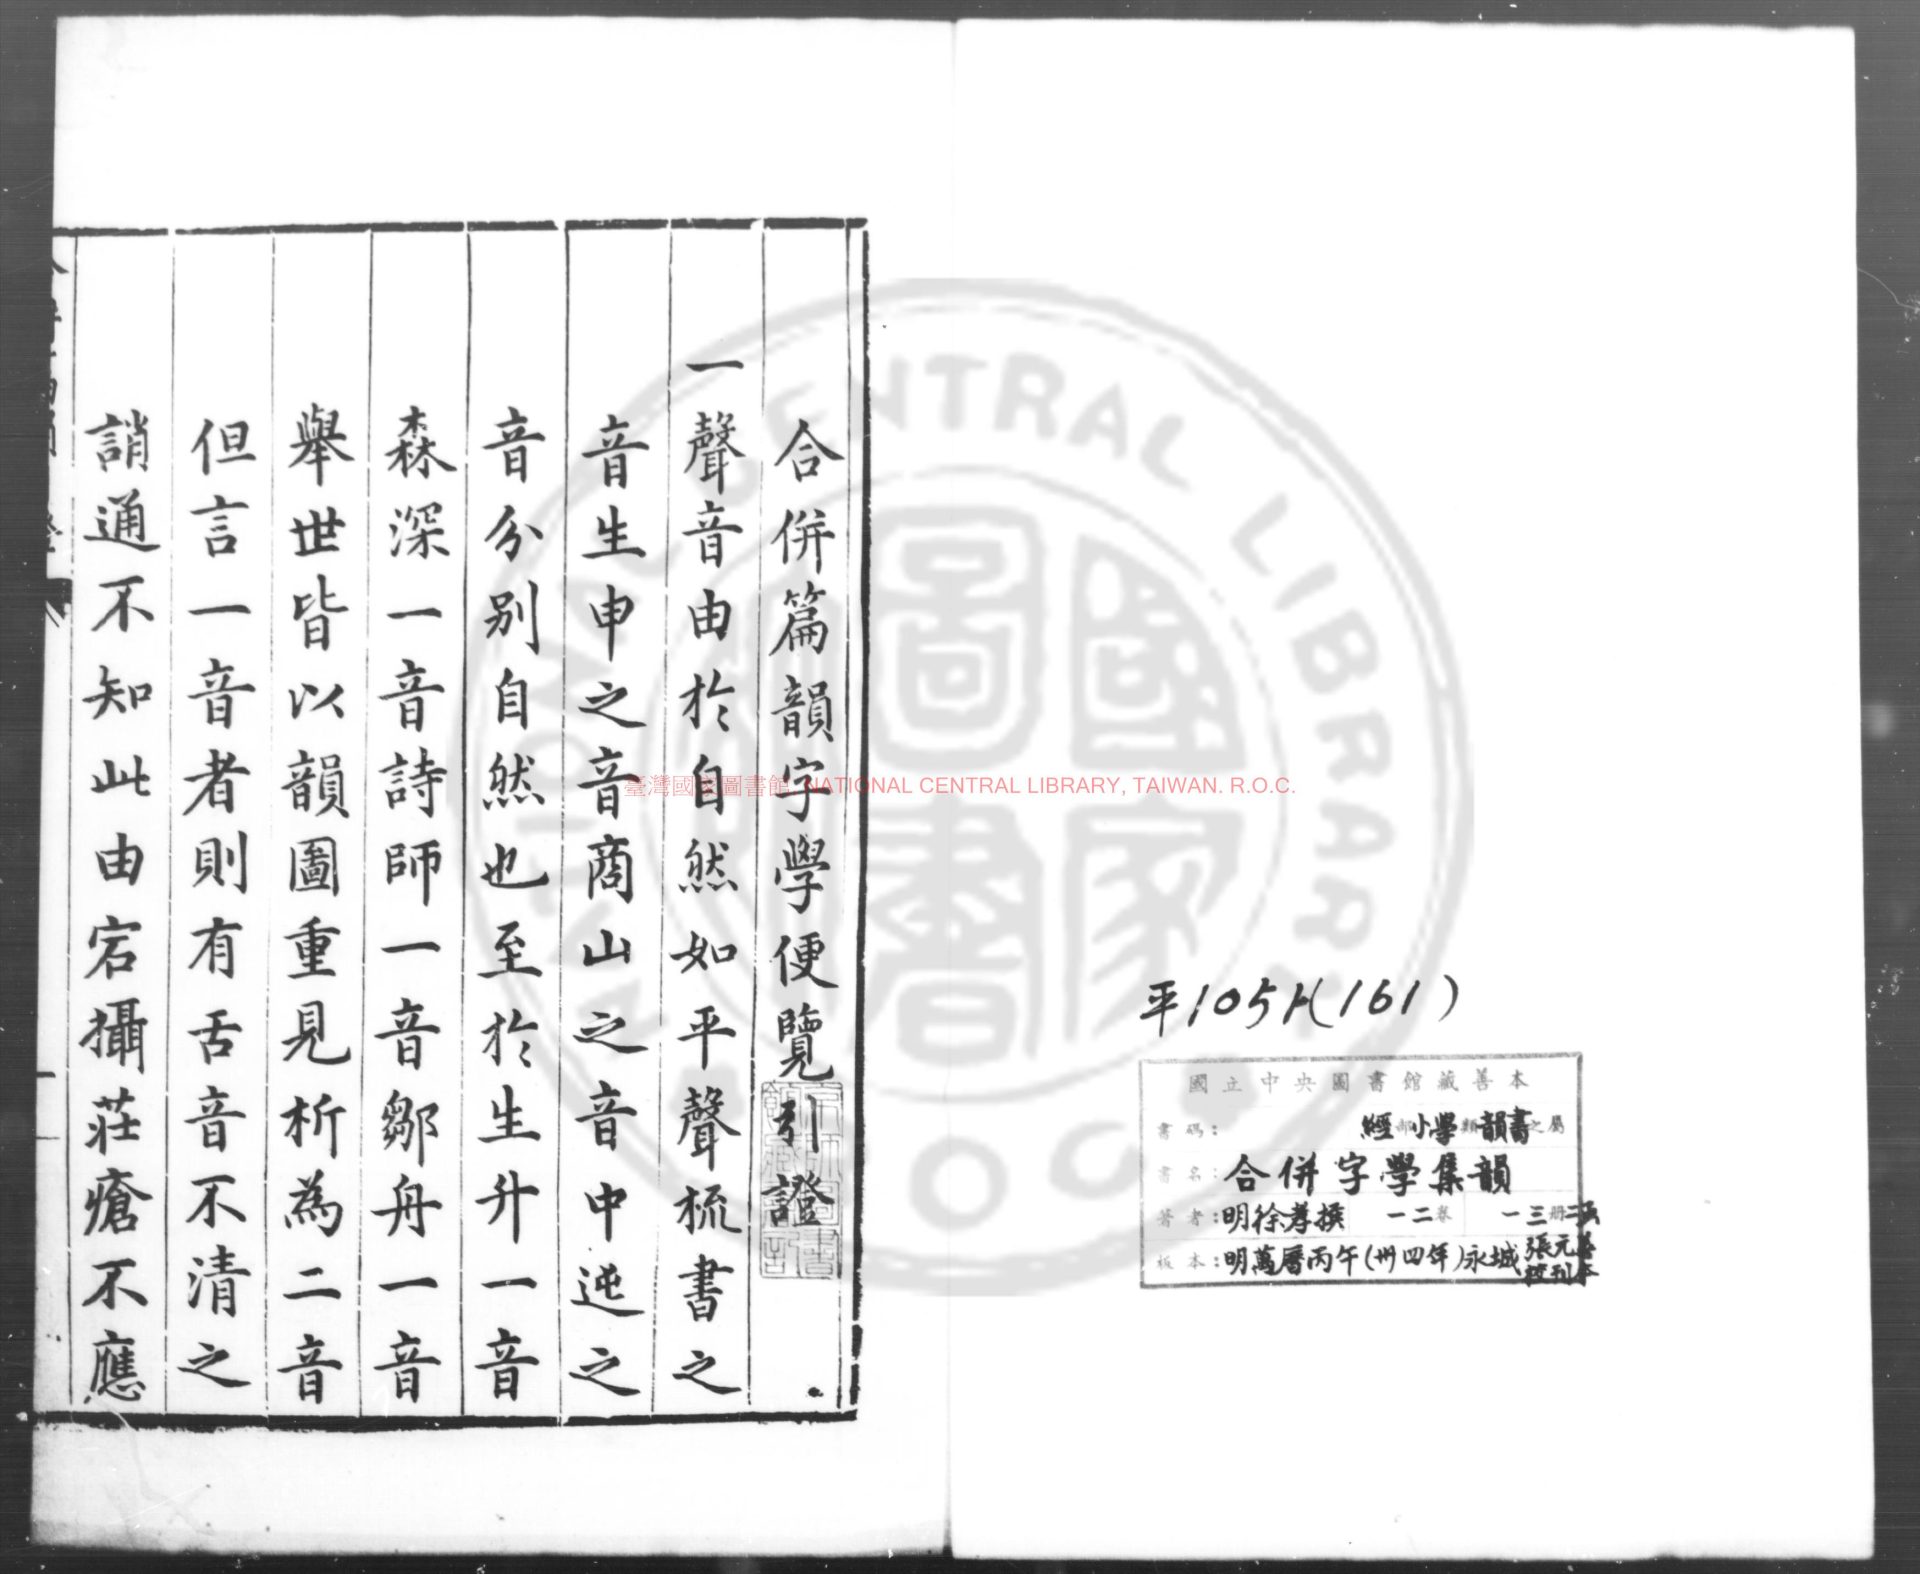 平1051-(161)
國立中央圖書館藏善本
書碼：經部小學類韻書之屬
書名：合併字學集韻
著者：明徐孝撰 一二卷 一三冊
板本：明萬曆丙午(卅四年)永城張元善校刊本
合併篇韻字學便覽引證
一聲音由於自然如平聲梳書之
音生申之音商山之音中迍之
音分別自然也至於生升一音
森深一音詩師一音鄒舟一音
舉世皆以韻圖重見析為二音
但言一音者則有舌音不清之
誚通不知此由宕攝莊瘡不應
臺灣國家圖書館 NATIONAL CENTRAL LIBRARY, TAIWAN. R.O.C.
NATIONAL CENTRAL LIBRARY
國家圖書
R.O.C.